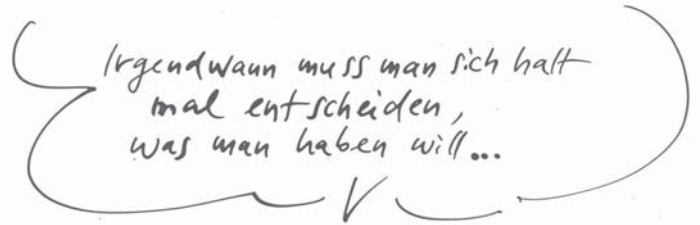 Irgendwann muss man sich halt
mal entscheiden,
was man haben will...